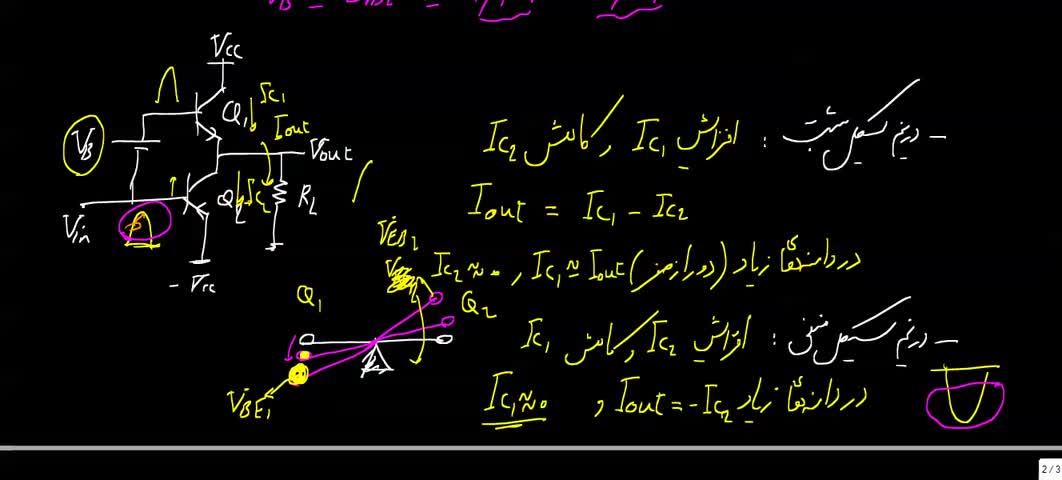 Vcc
Q1
Ic1
Iout
VB
Vout
RL
Vin
- Vcc
– در نیم سیکل مثبت : افزایش Ic1 و کاهش Ic2
Iout = Ic1 - Ic2
در دامنه‌های زیاد (دور از صفر) Ic2 ≈ 0 , Ic1 ≈ Iout
VEB2
Q1
Q2
VBE1
– در نیم سیکل منفی : افزایش Ic2 و کاهش Ic1
در دامنه‌های زیاد Iout = -Ic2 , Ic1 ≈ 0
2 / 3